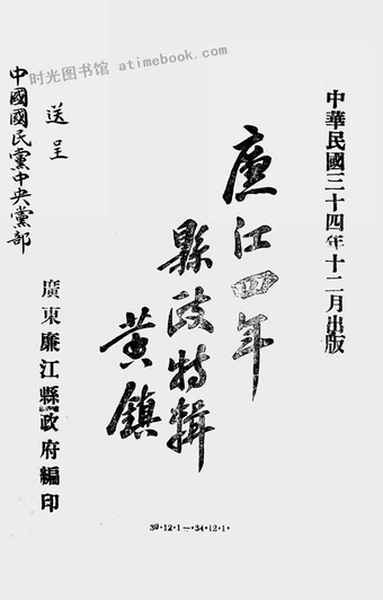 中華民國三十四年十二月出版
廉江四年
縣政特輯
黄鎮
送呈
中國國民黨中央黨部
廣東廉江縣政府編印
30·12·1—·34·12·1·
时光图书馆 atimebook.com